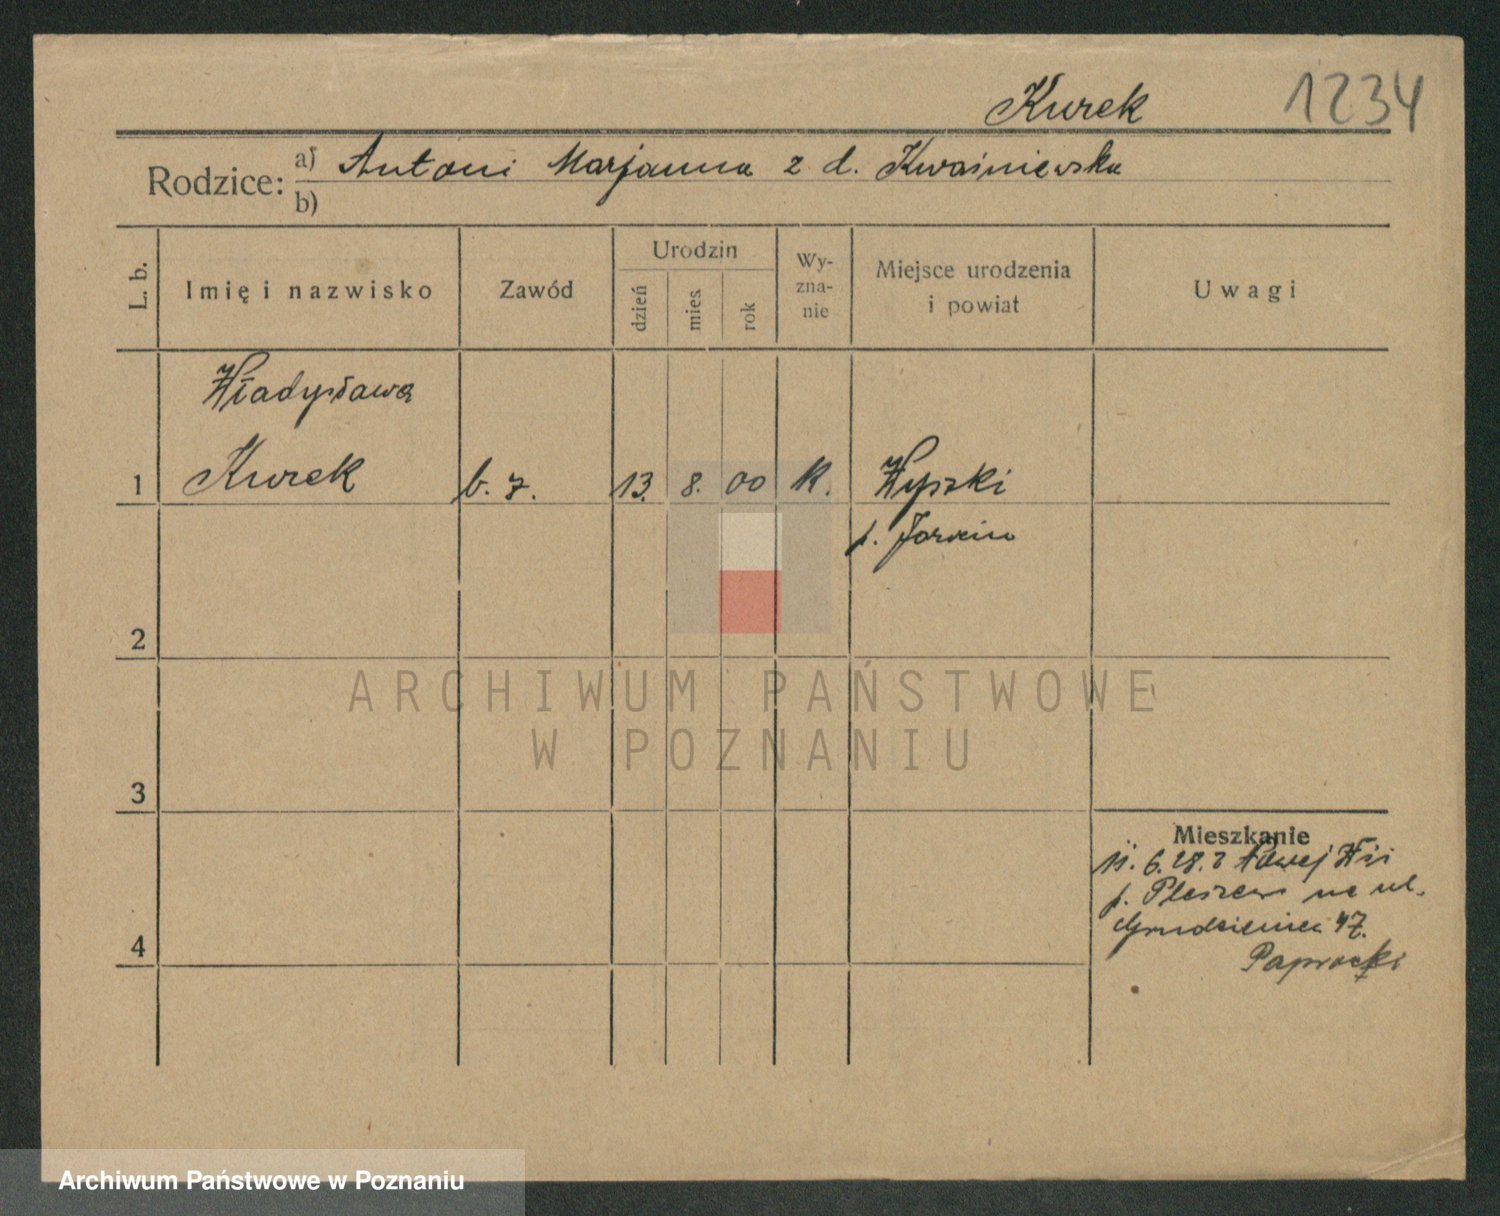 Kurek 1234
Rodzice: a) Antoni Marjanna z d. Kwaśniewska
b)
L. b. Imię i nazwisko Zawód Urodzin dzień mies. rok Wyznanie Miejsce urodzenia i powiat Uwagi
Władysława
1 Kurek b. z. 13. 8. 00 K. Wyszki
p. Jarocin
2
ARCHIWUM PAŃSTWOWE
W POZNANIU
3
Mieszkanie
11. 6. 28. z Nowej Wsi
p. Pleszew na ul.
Grudzieniec 47.
4
Paprocki
Archiwum Państwowe w Poznaniu